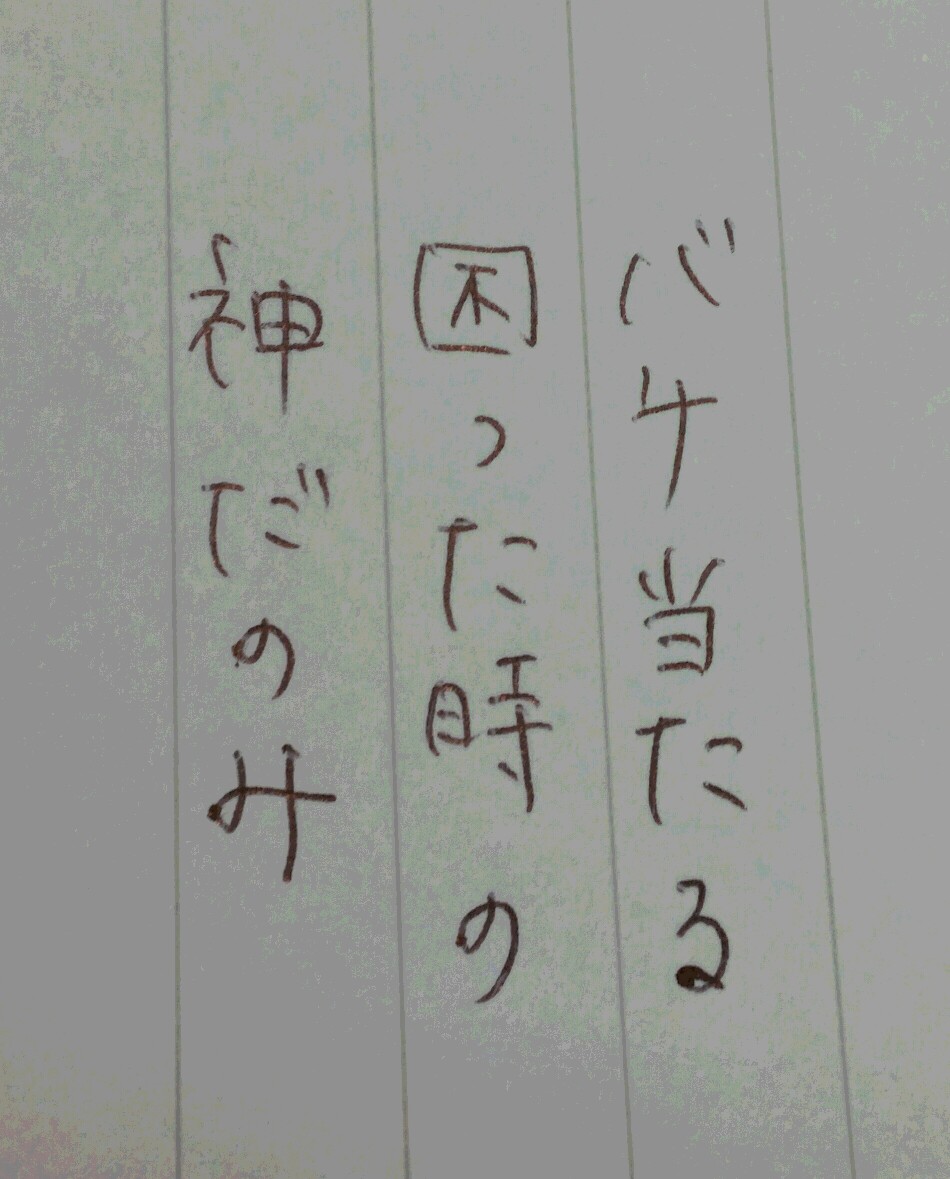 バチ当たる
困った時の
神だのみ